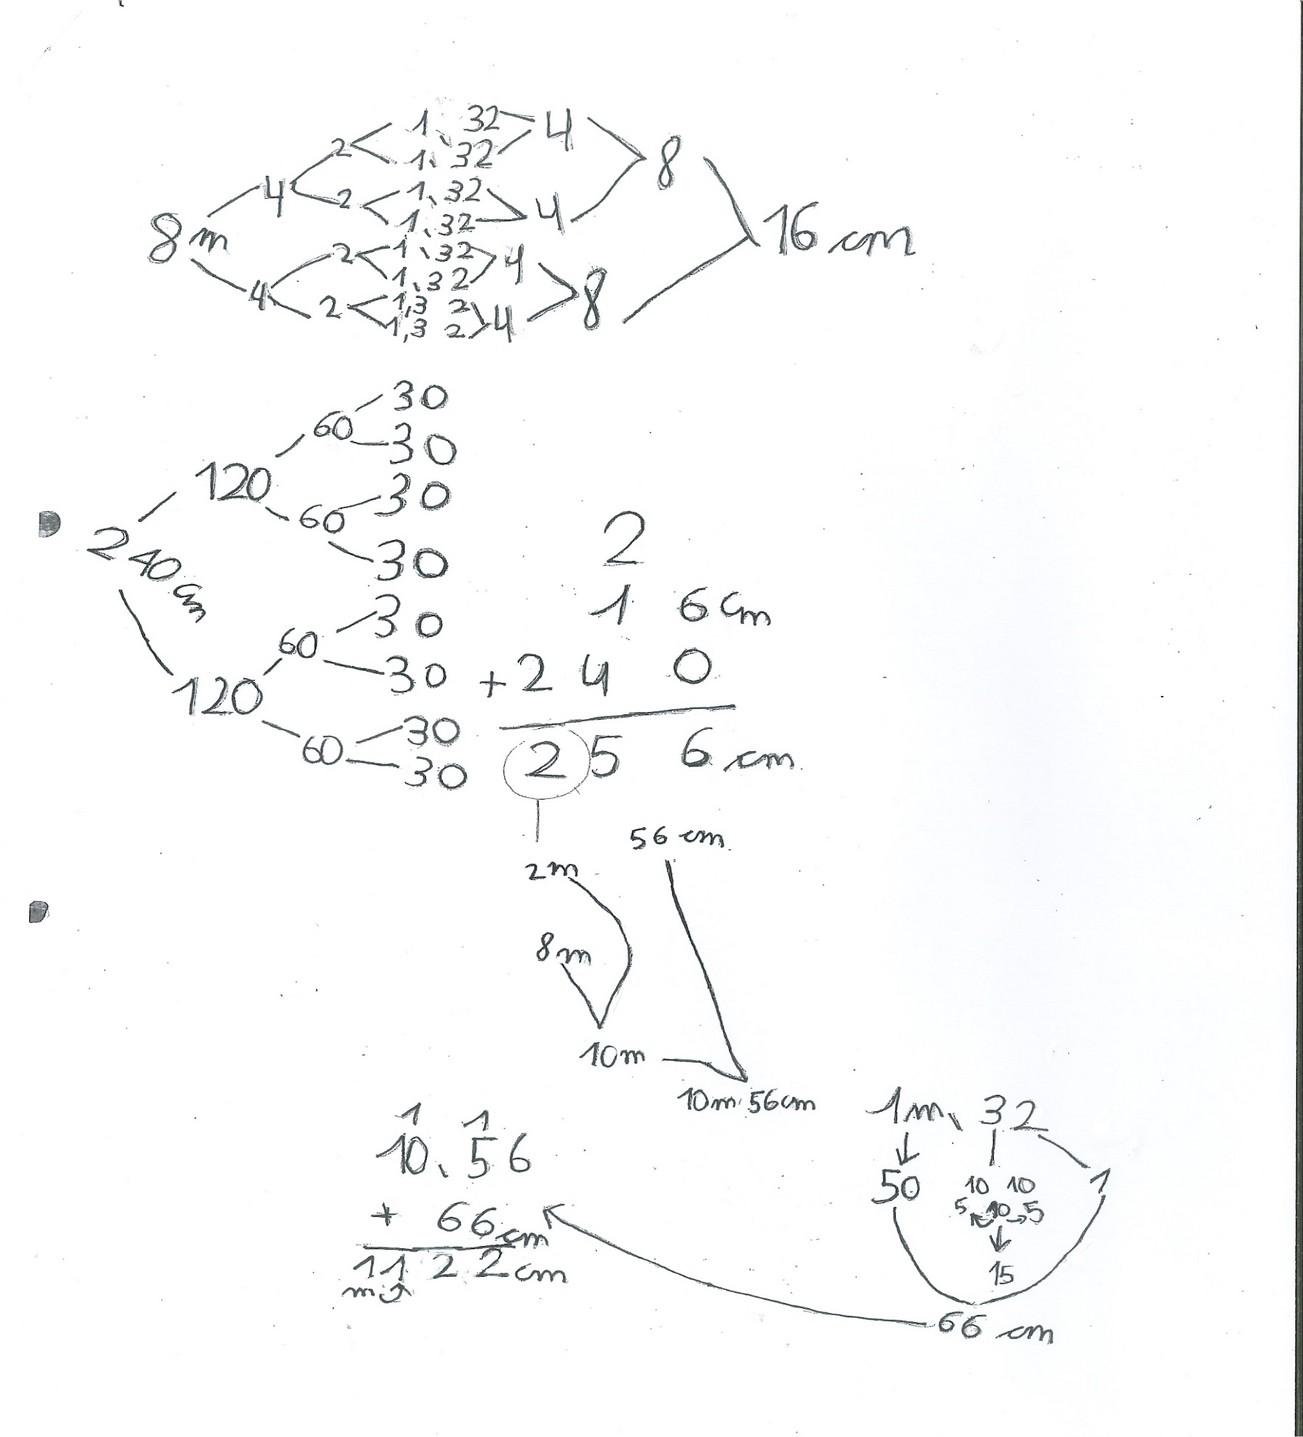 1, 32
4
2
1, 32
8
1, 32
4
2
4
1, 32
16 cm
8 m
1, 32
2
4
1, 32
4
8
1,3 2
2
4
1,3 2
30
60
30
120
30
60
30
240 cm
30
60
30
120
30
60
30
2
1 6 cm
+ 2 4 0
2 5 6 cm
56 cm
2m
8m
10m
10m 56cm
1 1
10, 56
+ 66 cm
11 22 cm
m
1m, 32
50
10 10
1
5 10 5
15
66 cm